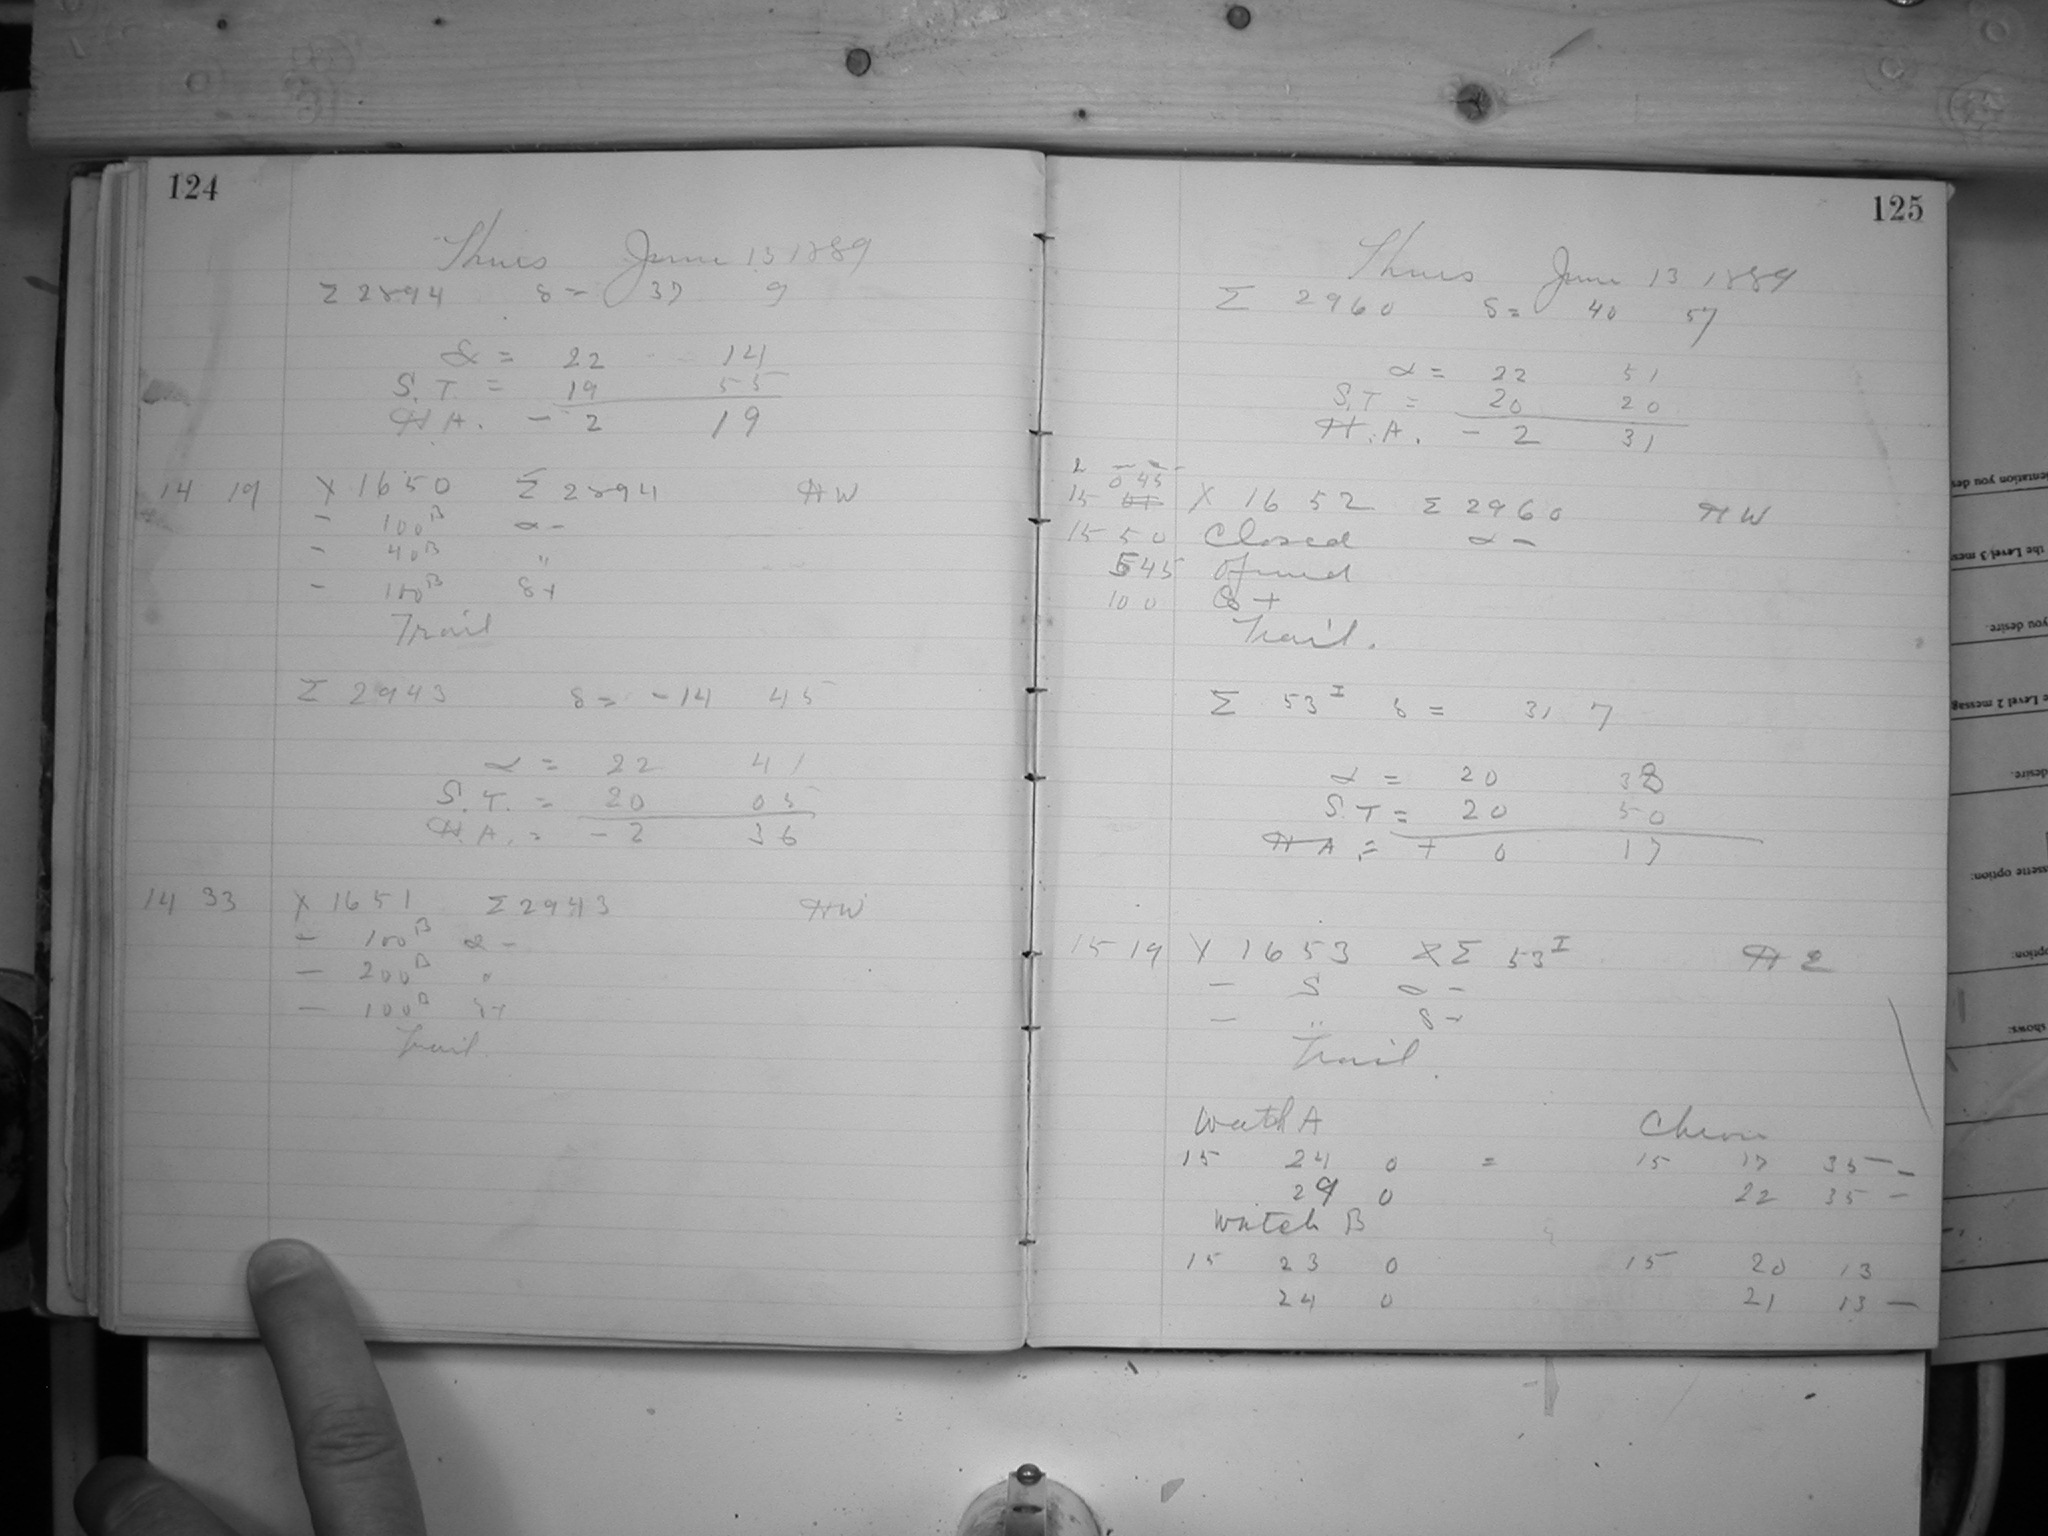 124
Thurs June 13 1889
Σ 2894 δ = 37 9
α = 22 14
S.T. = 19 55
H.A. - 2 19
14 19 X 1650 Σ 2894 HW
- 100B α -
- 40B "
- 100B δ +
Trail
Σ 2943 δ = -14 45
α = 22 41
S.T. = 20 05
H.A. = - 2 36
14 33 X 1651 Σ 2943 HW
- 100B α -
- 200B "
- 100B δ +
Trail
125
Thurs June 13 1889
Σ 2960 δ = 40 57
α = 22 51
S.T = 20 20
H.A. - 2 31
0 45
15 X 1652 Σ 2960 HW
15 50 Closed α -
545 Opened
10 0 δ +
Trail.
Σ 53 I δ = 31 7
α = 20 38
S.T = 20 50
HA = + 0 17
15 19 X 1653 Σ 53 I
- S α -
- " δ -
Trail.
Watch A Chron
15 24 0 = 15 17 35 -
29 0 22 35 -
Watch B
15 23 0 15 20 13
24 0 21 13 -
the Level 3 mes
you desire.
e Level 2 message
desire.
ssette option:
option:
shows: